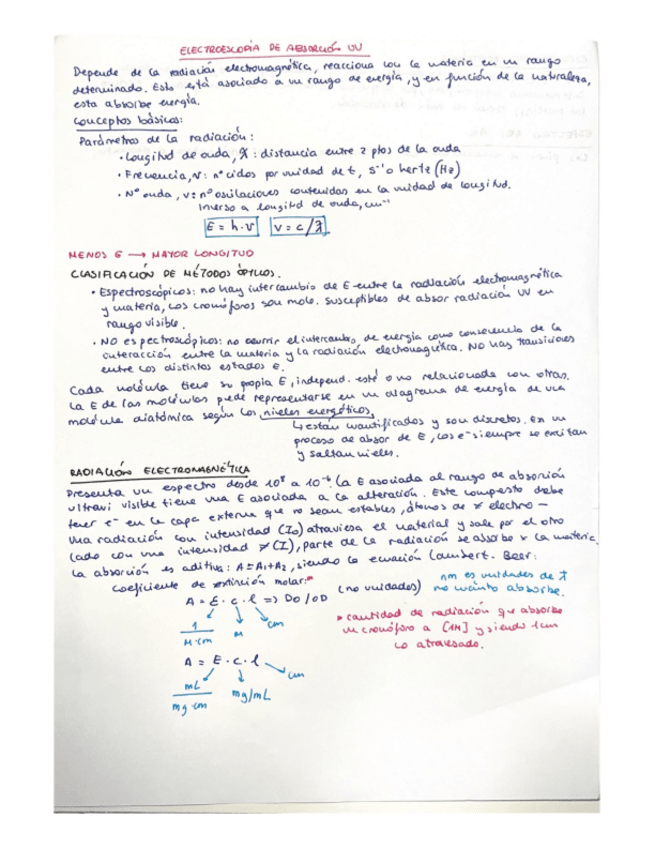 ELECTROESCOPIA DE ABSORCIÓN UV
Depende de la radiación electromagnética, reacciona con la materia en un rango
determinado. Esto está asociado a un rango de energía, y en función de la naturaleza,
esta absorbe energía.
Conceptos básicos:
Parámetros de la radiación:
· Longitud de onda, λ: distancia entre 2 ptos de la onda
· Frecuencia, ν: nº ciclos por unidad de t, s⁻¹ o hertz (Hz)
· Nº onda, ν: nº oscilaciones contenidas en la unidad de longitud.
Inverso a longitud de onda, cm⁻¹
E = h·ν ν = c/λ
MENOS E → MAYOR LONGITUD
CLASIFICACIÓN DE MÉTODOS ÓPTICOS.
· Espectroscópicos: no hay intercambio de E entre la radiación electromagnética
y materia, los cromóforos son molc. susceptibles de absor radiación UV en
rango visible.
· NO espectroscópicos: no ocurrir el intercambio de energía como consecuencia de la
interacción entre la materia y la radiación electromagnética. NO hay transiciones
entre los distintos estados E.
Cada molécula tiene su propia E, independ. esté o no relacionada con otras.
La E de las moléculas puede representarse en un diagrama de energía de una
molécula diatómica según los niveles energéticos,
↳ están cuantificados y son discretos. En un
proceso de absor de E, los e⁻ siempre se excitan
y saltan niveles.
RADIACIÓN ELECTROMAGNÉTICA
Presenta un espectro desde 10⁸ a 10⁻⁶. La E asociada al rango de absorción
ultravi visible tiene una E asociada a la alteración. Este compuesto debe
tener e⁻ en la capa externa que no sean estables, átonos de ≠ electro-
Una radiación con intensidad (I₀) atraviesa el material y sale por el otro
lado con una intensidad ≠ (I), parte de la radiación se absorbe x la materia.
La absorción es aditiva: A = A₁ + A₂, siendo la ecuación Lambert. Beer:
coeficiente de extinción molar:*
A = E · c · l => DO/OD (no unidades) nm es unidades de λ
no cuánto absorbe.
1/M·cm M cm
* cantidad de radiación que absorbe
un cromóforo a [1M] y siendo 1cm
lo atravesado.
A = E · c · l
mL/mg·cm mg/mL cm